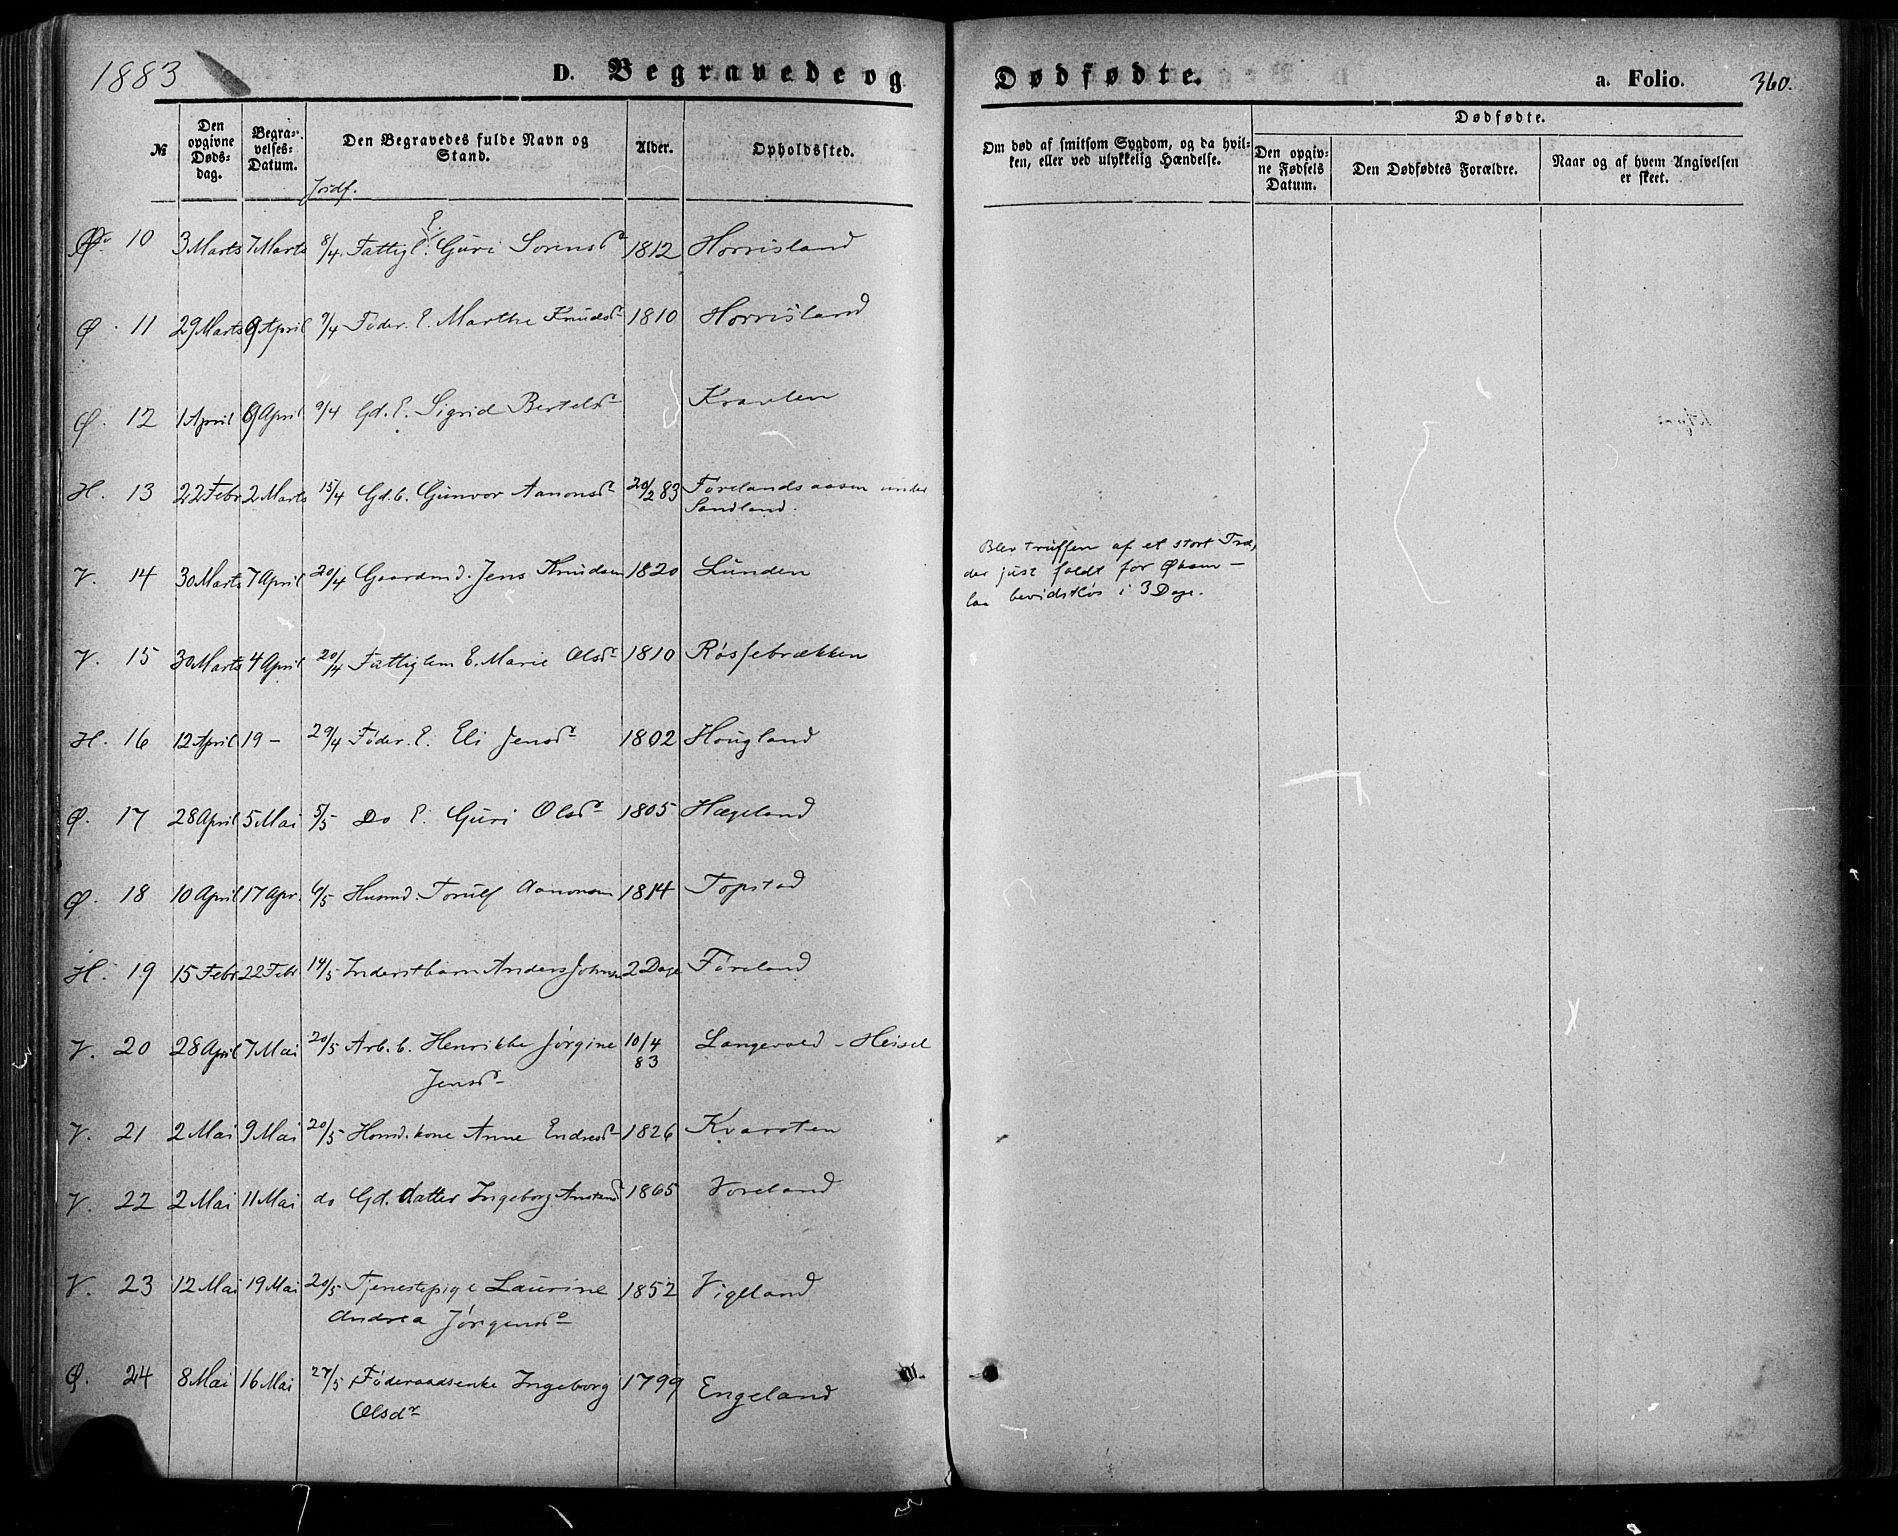 1883
D. Begravede og Dødfødte.
a. Folio. 360.
№
Den opgivne Døds-dag.
Begra-velses-Datum.
Den Begravedes fulde Navn og Stand.
Alder.
Opholdssted.
Om død af smitsom Sygdom, og da hvil-ken, eller ved ulykkelig Hændelse.
Dødfødte.
Den opgiv-ne Fødsels Datum.
Den Dødfødtes Forældre.
Naar og af hvem Angivelsen er skeet.
Jordf.
Ø. 10 3 Marts 7 Marts 8/4 Fattigl. E. Guri Sorensdr 1812 Horrisland
Ø. 11 29 Marts 9 April 9/4 Føder. E. Marthe Knudsdr 1810 Horrisland
Ø. 12 1 April 9 April 9/4 Gd. E. Sigrid Bertelsdr
H. 13 22 Febr 2 Marts 15/4 Gd. b. Gunvor Aanonsdr 20/2 83 Førelandsaasen under
Sandland.
V. 14 30 Marts 7 April 20/4 Gaardmd. Jens Knudsen 1820 Lunden
Blev truffen af et stort Træ,
der just faldt for Øksen —
laa bevidstløs i 3 Dage.
V. 15 30 Marts 4 April 20/4 Fattiglem E. Marie Olsdr 1810 Røssebrækken
H. 16 12 April 19 - 29/4 Føder. E. Eli Jensdr 1802 Hougland
Ø. 17 28 April 5 Mai 5/5 Do E. Guri Olsdr 1805 Hægeland
Ø. 18 10 April 17 Apr. 6/5 Husmd. Torulf Aanonsen 1814 Topstad
H. 19 15 Febr 22 Febr 14/5 Inderstbarn Anders Johnsen 2 Dage Føreland
V. 20 28 April 7 Mai 20/5 Arb. b. Henrikke Jørgine 10/4 83 Langevold - Heisel
Jensdr
V. 21 2 Mai 9 Mai 20/5 Husmd. kone Anne Endresdr 1826 Kvarsten
V. 22 2 Mai 11 Mai do Gd. datter Ingeborg 1865 Voreland
V. 23 12 Mai 19 Mai 20/5 Tjenestepige Laurine 1852 Vigeland
Andrea Jörgensdr
Ø. 24 8 Mai 16 Mai 27/5 Føderaadsenke Ingeborg 1799 Engeland
Olsdr